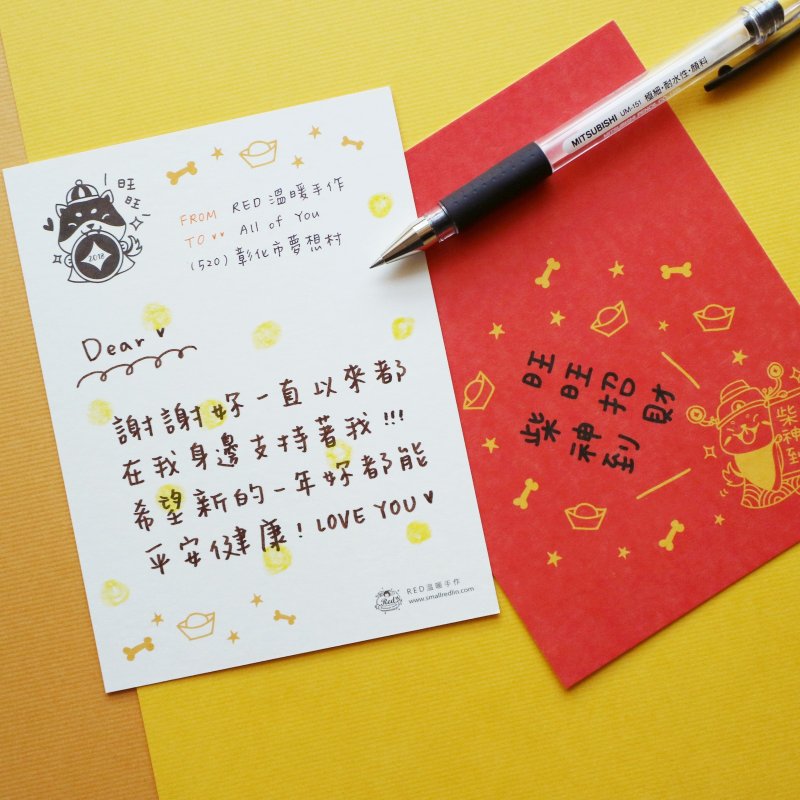 旺
旺
2018
FROM RED 溫暖手作
TO ♥♥ All of You
(520) 彰化市夢想村
Dear ♥
謝謝妳一直以來都
在我身邊支持著我!!!
希望新的一年妳都能
平安健康! LOVE YOU ♥
Red's
RED溫暖手作
www.smallredlin.com
MITSUBISHI UM-151 極細・耐水性・顔料
旺旺招財
柴神到
柴神到